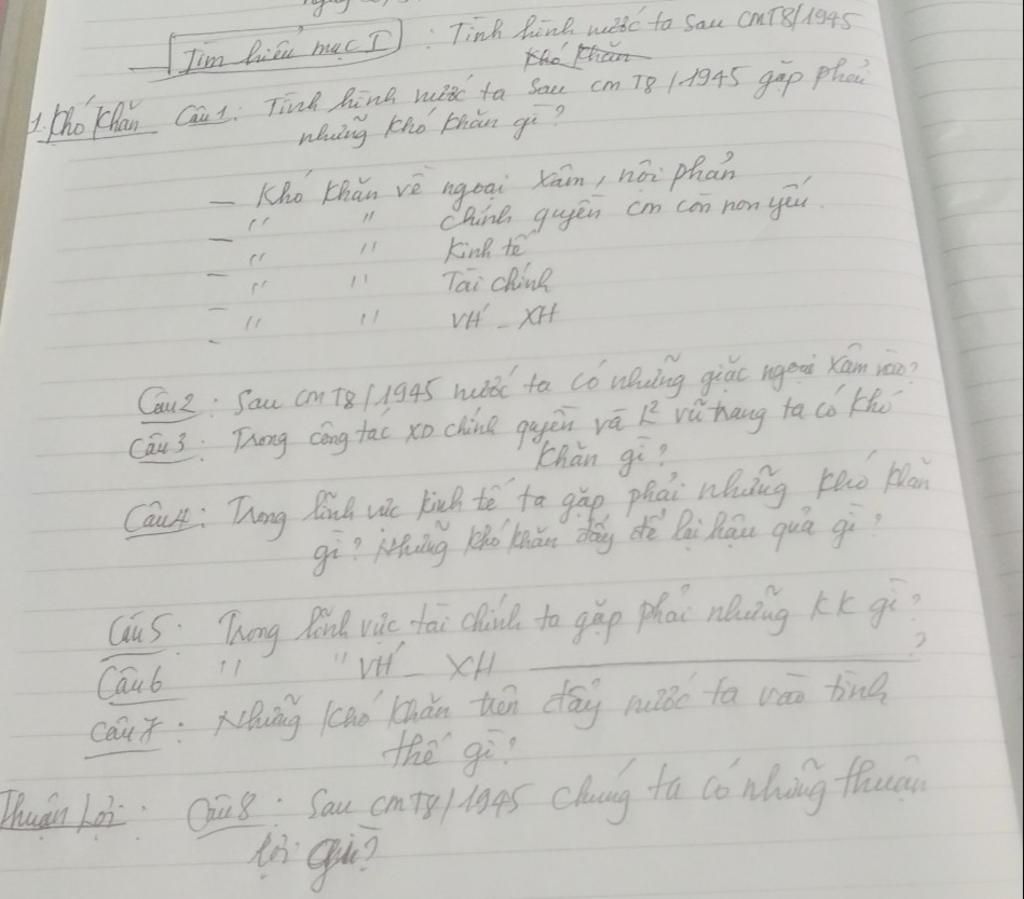 Tìm hiểu mục I : Tình hình nước ta sau CMT8/1945
Khó khăn
1. Khó khăn Câu 1: Tình hình nước ta sau CMT8/1945 gặp phải
những khó khăn gì?
- Khó khăn về ngoại xâm, nội phản
- " " chính quyền cm còn non yếu.
- " " Kinh tế
- " " Tài chính
- " " VH - XH
Câu 2: Sau CMT8/1945 nước ta có những giặc ngoại xâm nào?
Câu 3: Trong công tác XD chính quyền và L² vũ trang ta có khó
khăn gì?
Câu 4: Trong lĩnh vực kinh tế ta gặp phải những khó khăn
gì? Những khó khăn đấy để lại hậu quả gì?
Câu 5: Trong lĩnh vực tài chính ta gặp phải những KK gì?
Câu 6 " " VH - XH ?
Câu 7: Những khó khăn trên đẩy nước ta vào tình
thế gì?
Thuận Lợi: Câu 8: Sau CMT8/1945 chúng ta có những thuận
lợi gì?